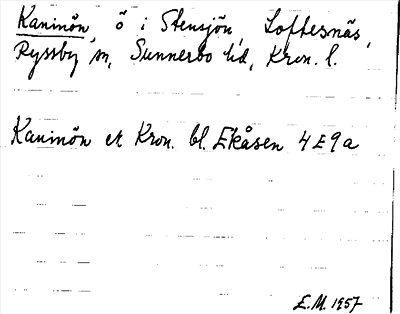 Kaninön, ö i Stensjön, Loftesnäs,
Ryssby sn, Sunnerbo hd, Kron. l.
Kaninön ek Kron. bl. Ekåsen 4 E 9 a
E.M. 1957